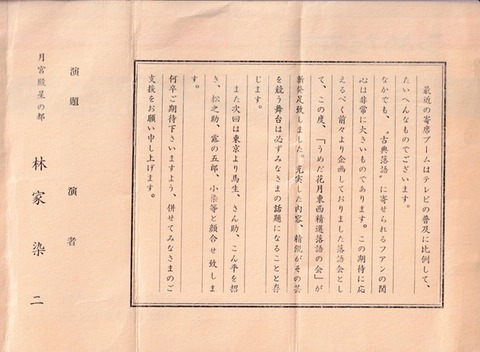 最近の寄席ブームはテレビの普及に比例して、
たいへんなものでございます。
なかでも、“古典落語”に寄せられるファンの関
心は非常に大きいものであります。この期待に応
えるべく前々より企画しておりました落語会とし
て、この度、「うめだ花月東西精選落語の会」が
新発足致しました。充実した内容、精鋭がその芸
を競う舞台は必ずみなさまの話題になることと存
じます。
また次回は東京より馬生、さん助、こん平を招
き、松之助、露の五郎、小染等と顔合せ致しま
す。
何卒ご期待下さいますよう、併せてみなさまのご
支援をお願い申し上げます。
演題 演者
月宮殿星の都 林家染二